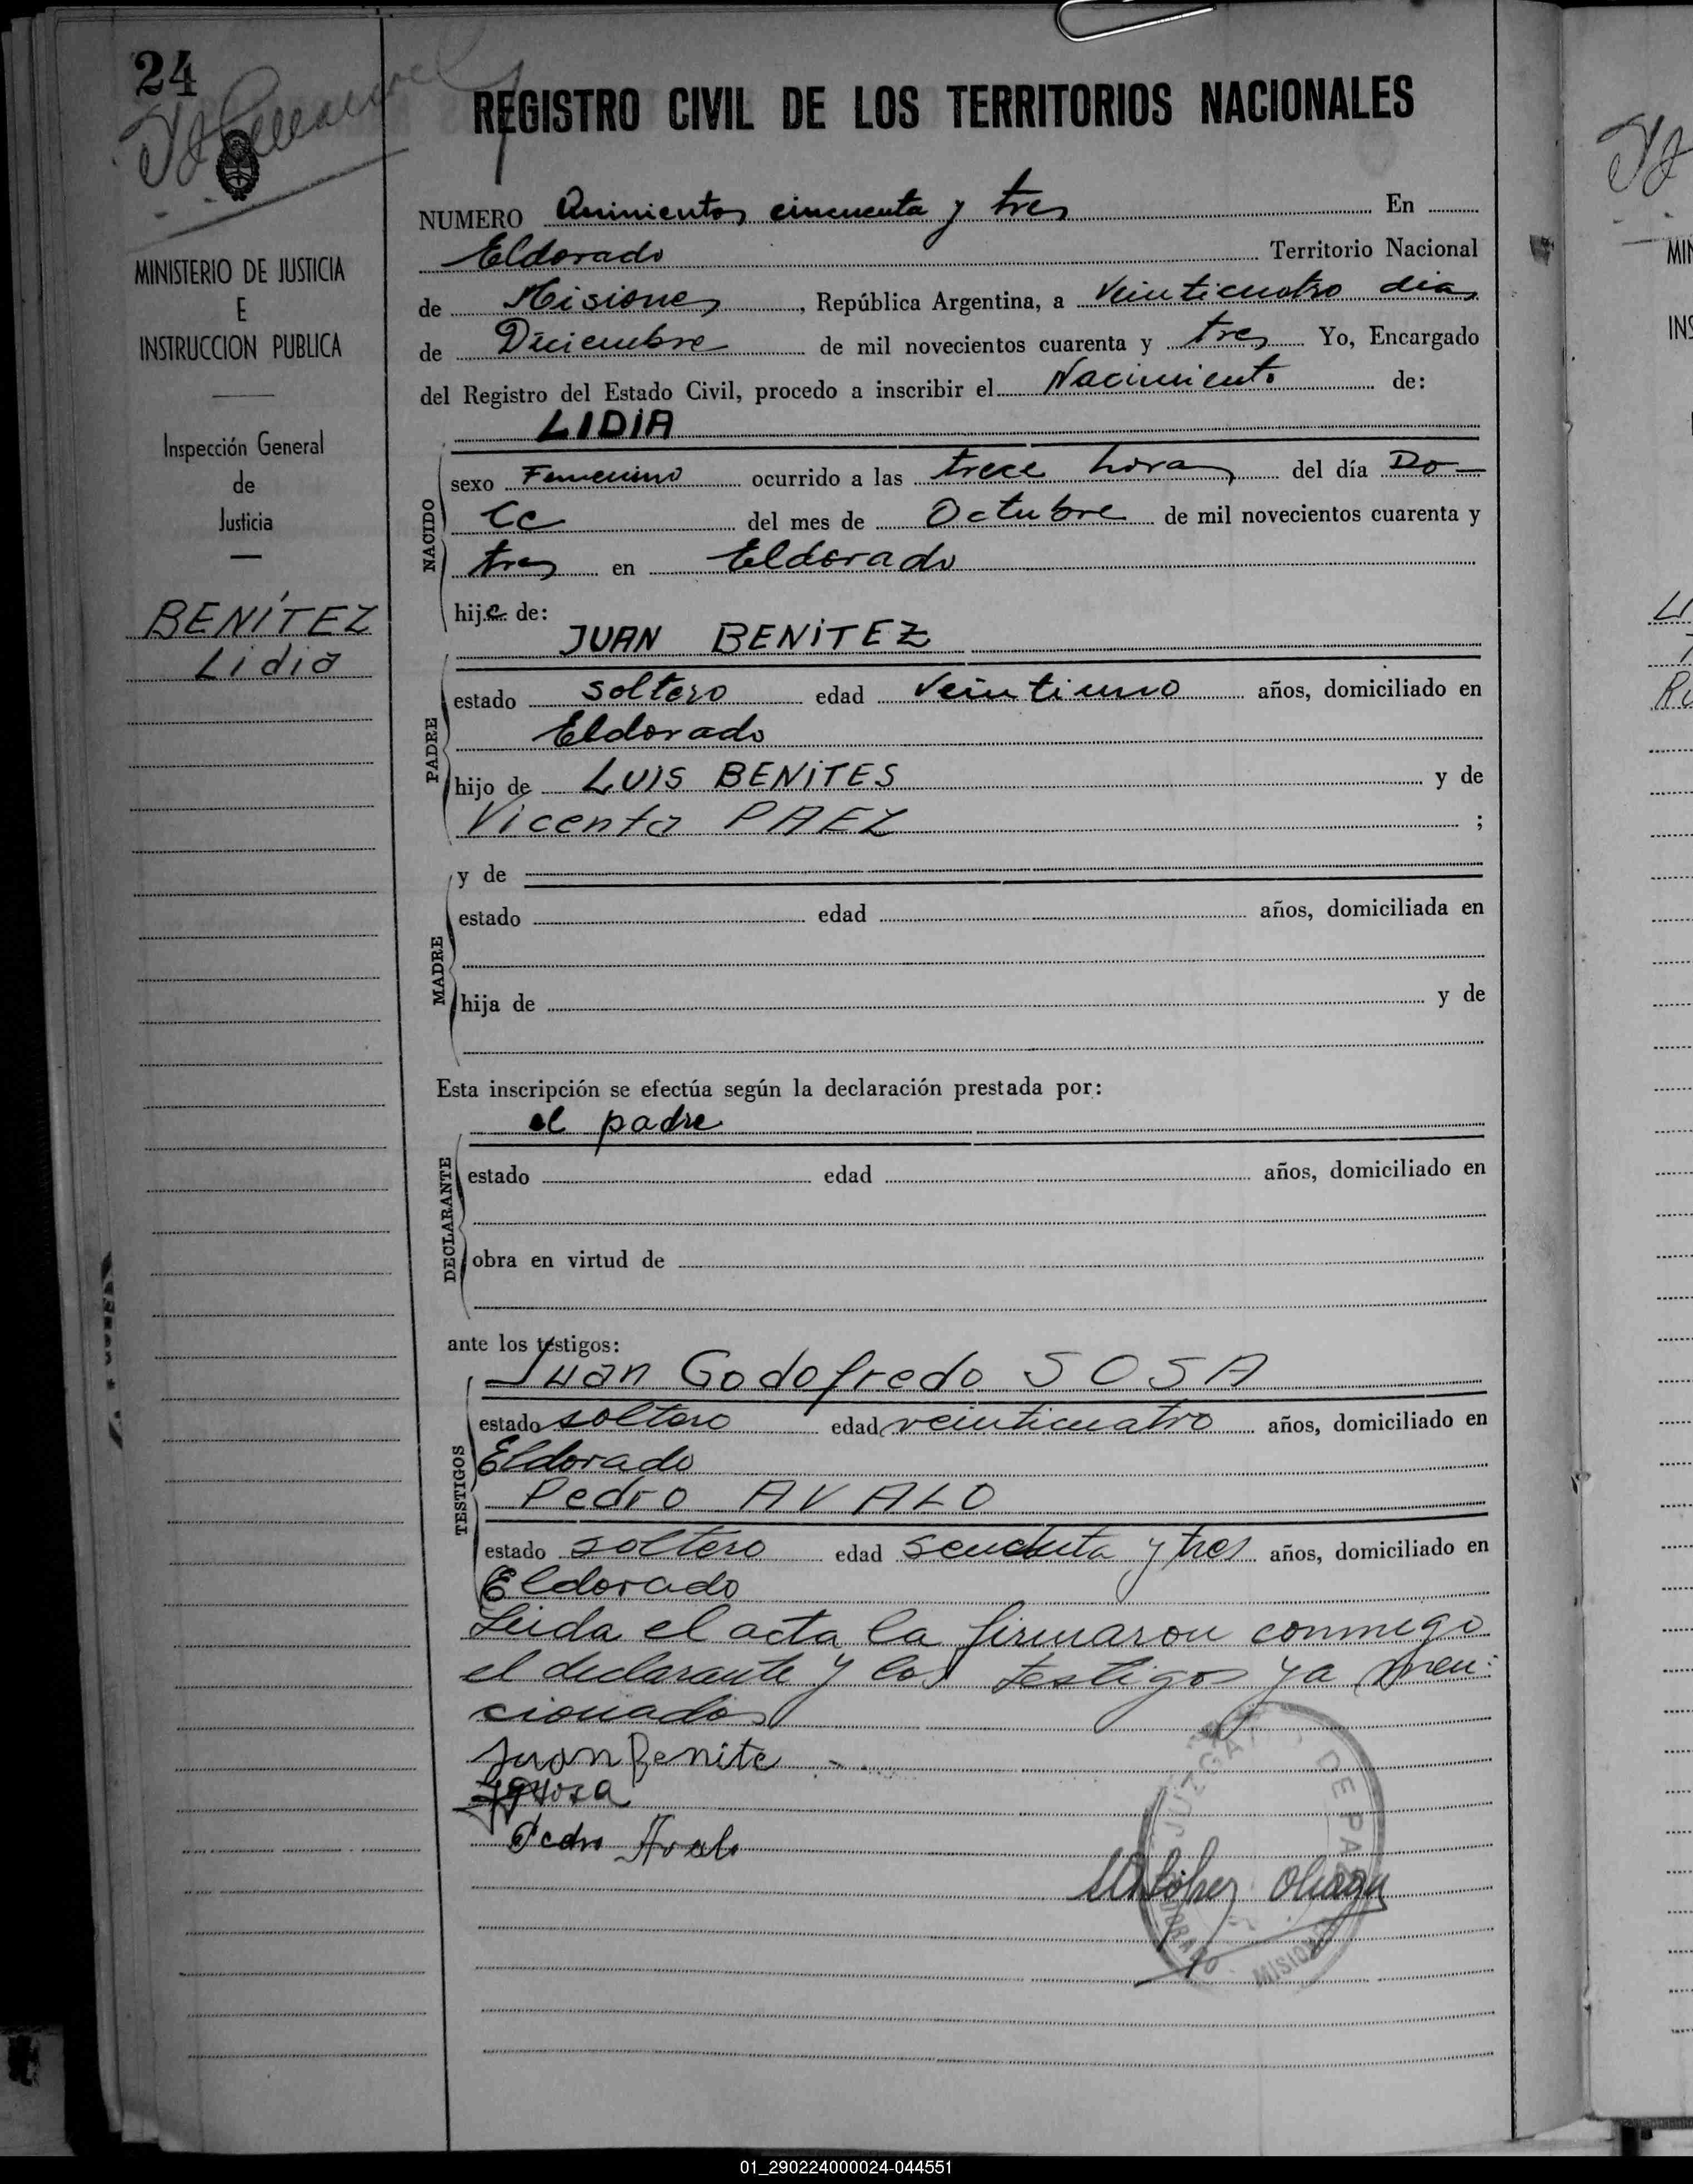 24
REGISTRO CIVIL DE LOS TERRITORIOS NACIONALES
MINISTERIO DE JUSTICIA
E
INSTRUCCION PUBLICA
Inspección General
de
Justicia
BENÍTEZ
Lidia
NUMERO Quinientos cincuenta y tres En
Eldorado Territorio Nacional
de Misiones, República Argentina, a Veinticuatro dias
de Diciembre de mil novecientos cuarenta y tres Yo, Encargado
del Registro del Estado Civil, procedo a inscribir el Nacimiento de:
LIDIA
NACIDO
sexo Femenino ocurrido a las trece horas del día Do-
ce del mes de Octubre de mil novecientos cuarenta y
tres en Eldorado
hija de:
JUAN BENITEZ
PADRE
estado soltero edad Veintiuno años, domiciliado en
Eldorado
hijo de LUIS BENITES y de
Vicenta PAEZ ;
y de
MADRE
estado edad años, domiciliada en
hija de y de
Esta inscripción se efectúa según la declaración prestada por:
el padre
DECLARANTE
estado edad años, domiciliado en
obra en virtud de
ante los testigos:
Juan Godofredo SOSA
TESTIGOS
estado soltero edad veinticuatro años, domiciliado en
Eldorado
Pedro AVALO
estado soltero edad y tres años, domiciliado en
Eldorado
Leida el acta la firmaron conmigo
el declarante y los testigos ya men:
cionados
Juan Benite
Pedro Avalo
JUZGADO DE PAZ
ELDORADO MISIONES
López
MIN
INS
01_290224000024-044551